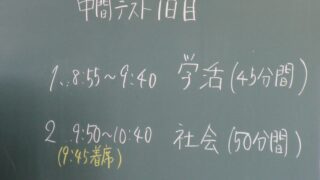 中間テスト1日目
1...8:55～9:40 学活(45分間)
2...9:50～10:40 社会(50分間)
(9:45着席)